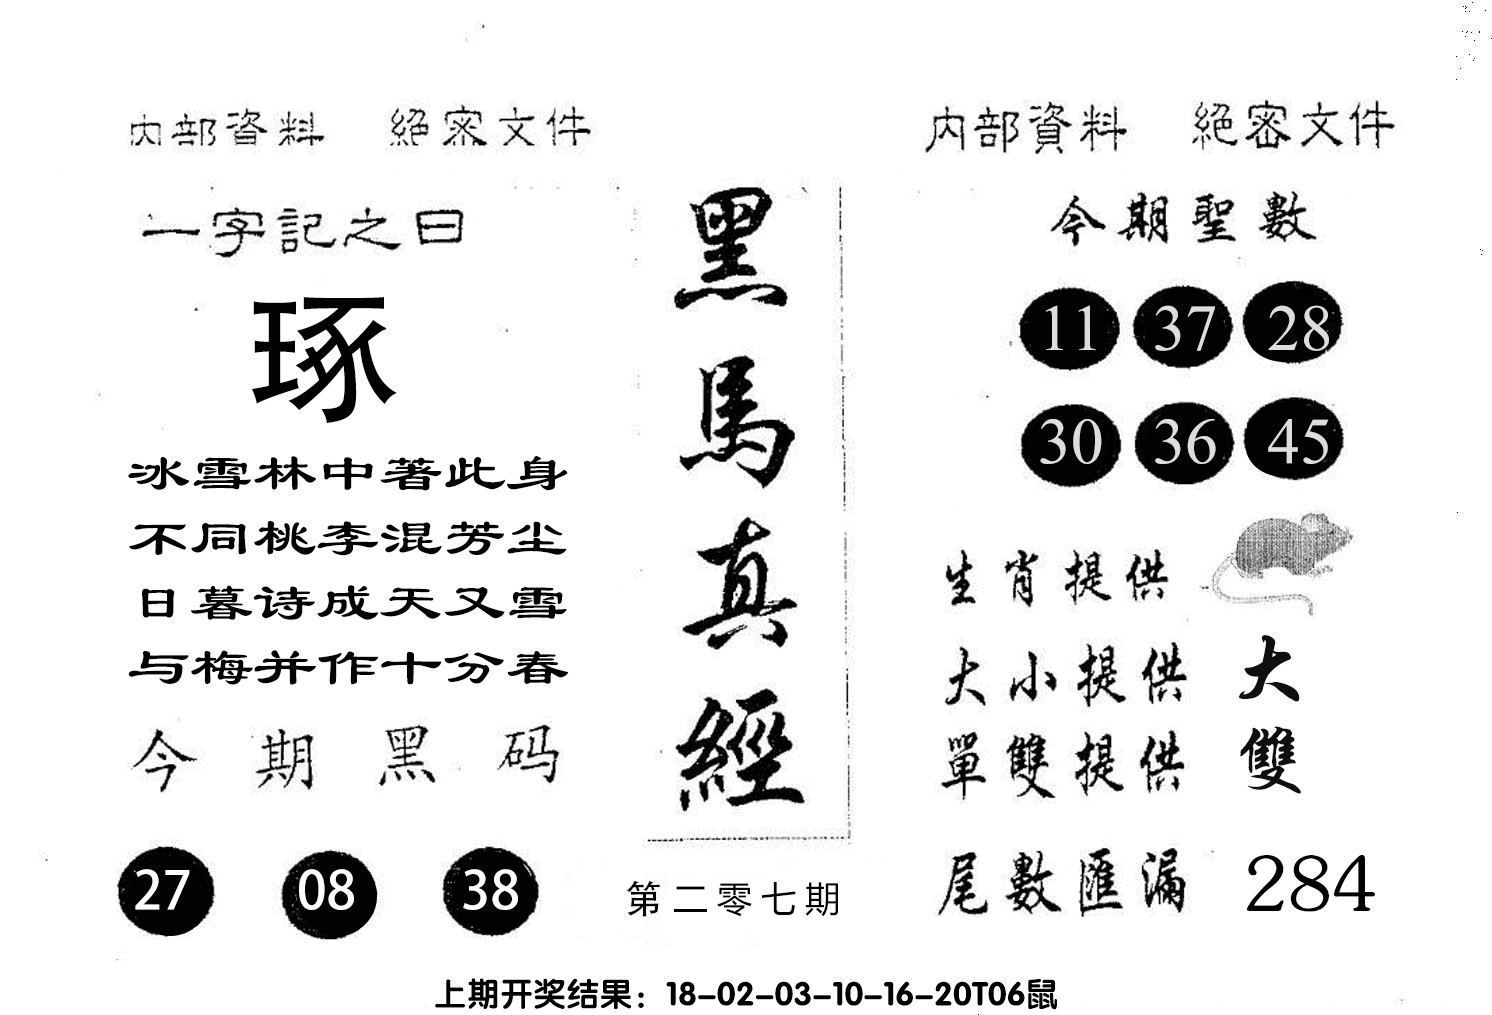 内部資料 絕密文件
一字記之曰
琢
冰雪林中著此身
不同桃李混芳尘
日暮诗成天又雪
与梅并作十分春
今期黑码
27 08 38
黑馬真經
第二零七期
内部資料 絕密文件
今期聖數
11 37 28
30 36 45
生肖提供
大小提供 大
單雙提供 雙
尾數匯漏 284
上期开奖结果：18-02-03-10-16-20T06鼠